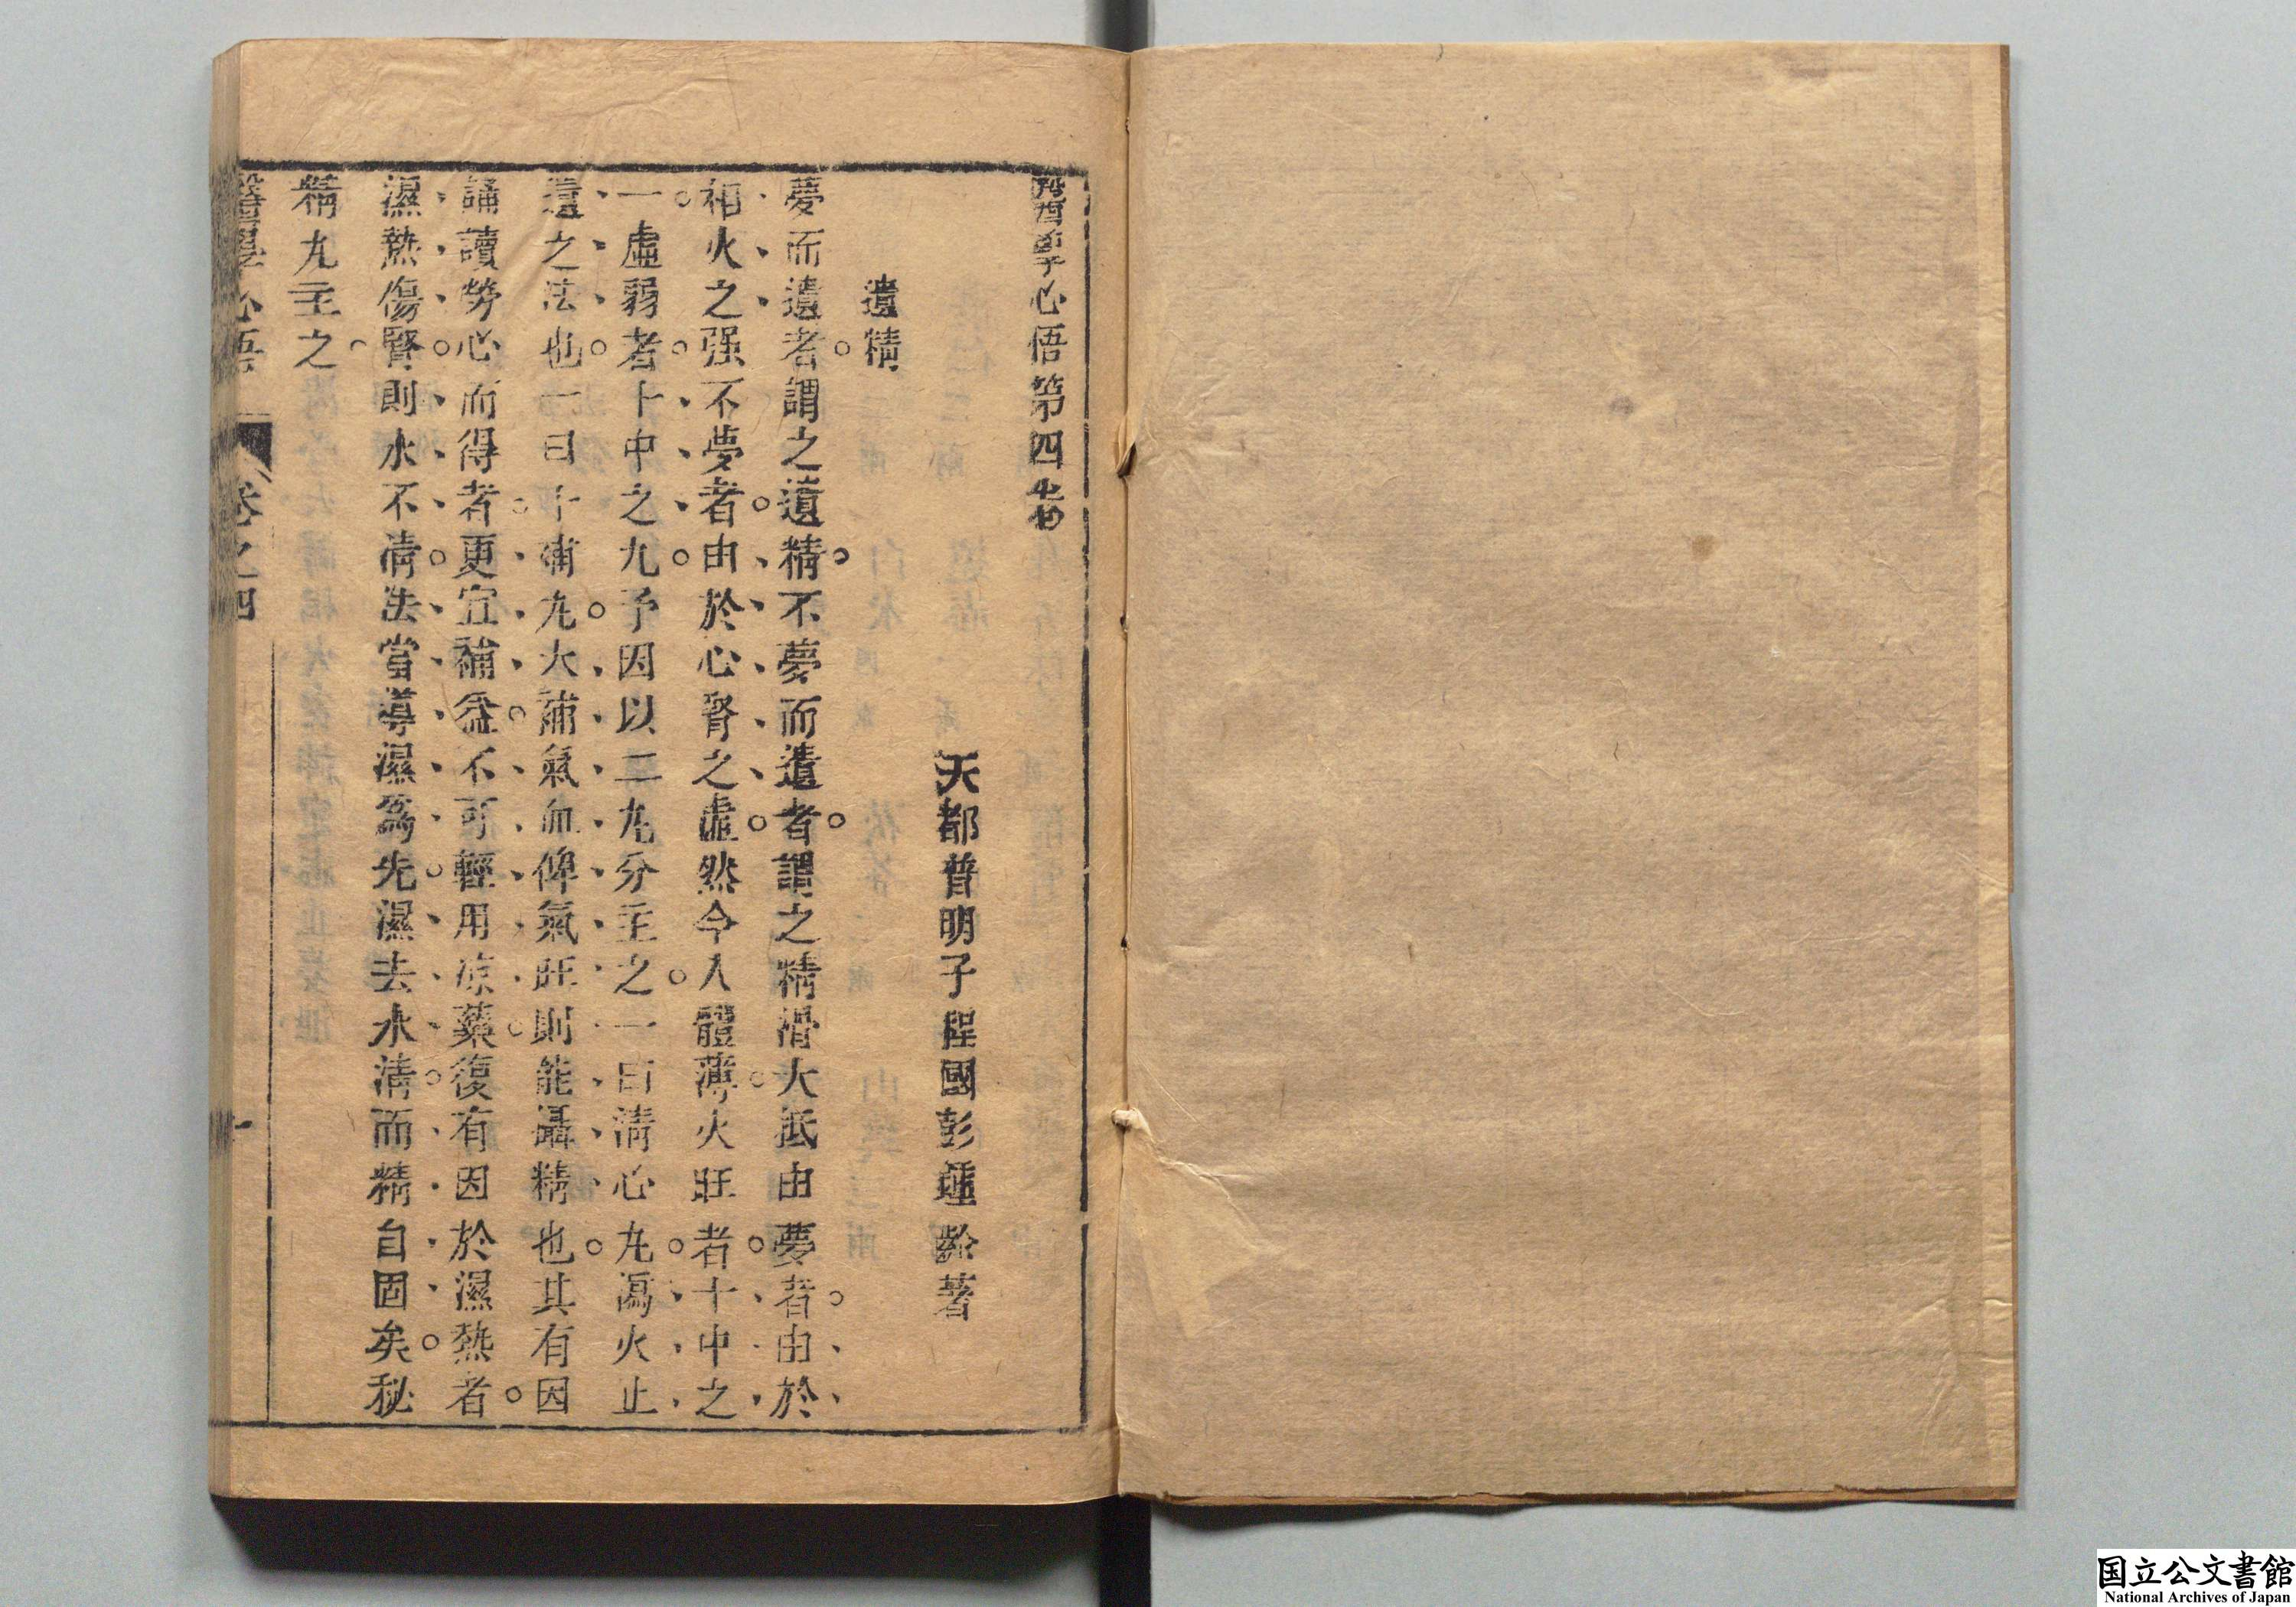 醫學心悟第四卷
天都普明子程國彭鍾齡著
遺精
夢而遺者謂之遺精不夢而遺者謂之精滑大抵由夢者由於
相火之强不夢者由於心腎之虛然今人體薄火旺者十中之
一虛弱者十中之九予因以二丸分主之一曰清心丸瀉火止
遺之法也一曰十補丸大補氣血俾氣旺則能攝精也其有因
誦讀勞心而得者更宜補益不可輕用凉藥復有因於濕熱者
濕熱傷腎則水不清法當導濕爲先濕去水清而精自固矣秘
精丸主之
醫學心悟 卷之四 一
国立公文書館
National Archives of Japan